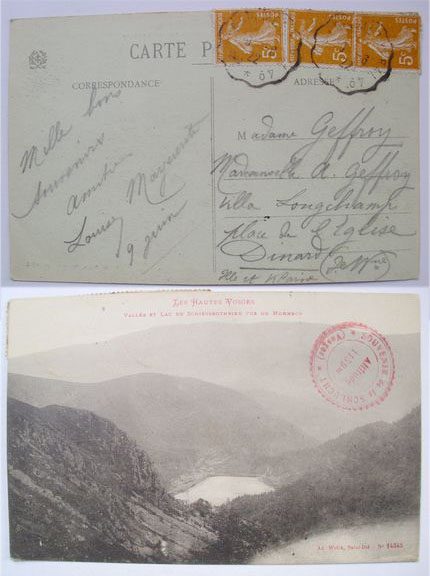 CARTE P
CORRESPONDANCE
ADRESSE
5c
5c
5c
Mille bons
souvenirs
Amitiés
Louise Marguerite
9 juin
Madame Geffroy
Mademoiselle A. Geffroy
Villa Longchamp
place de l'Église
Dinard
Ille et Vilaine
LES HAUTES VOSGES
VALLÉE ET LAC DE SCHIESSROTHRIED VUS DU HOHNECK
SOUVENIR de la SCHLUCHT (Vosges)
Altitude
1159m
Ad. Weick, Saint-Dié - No 14345